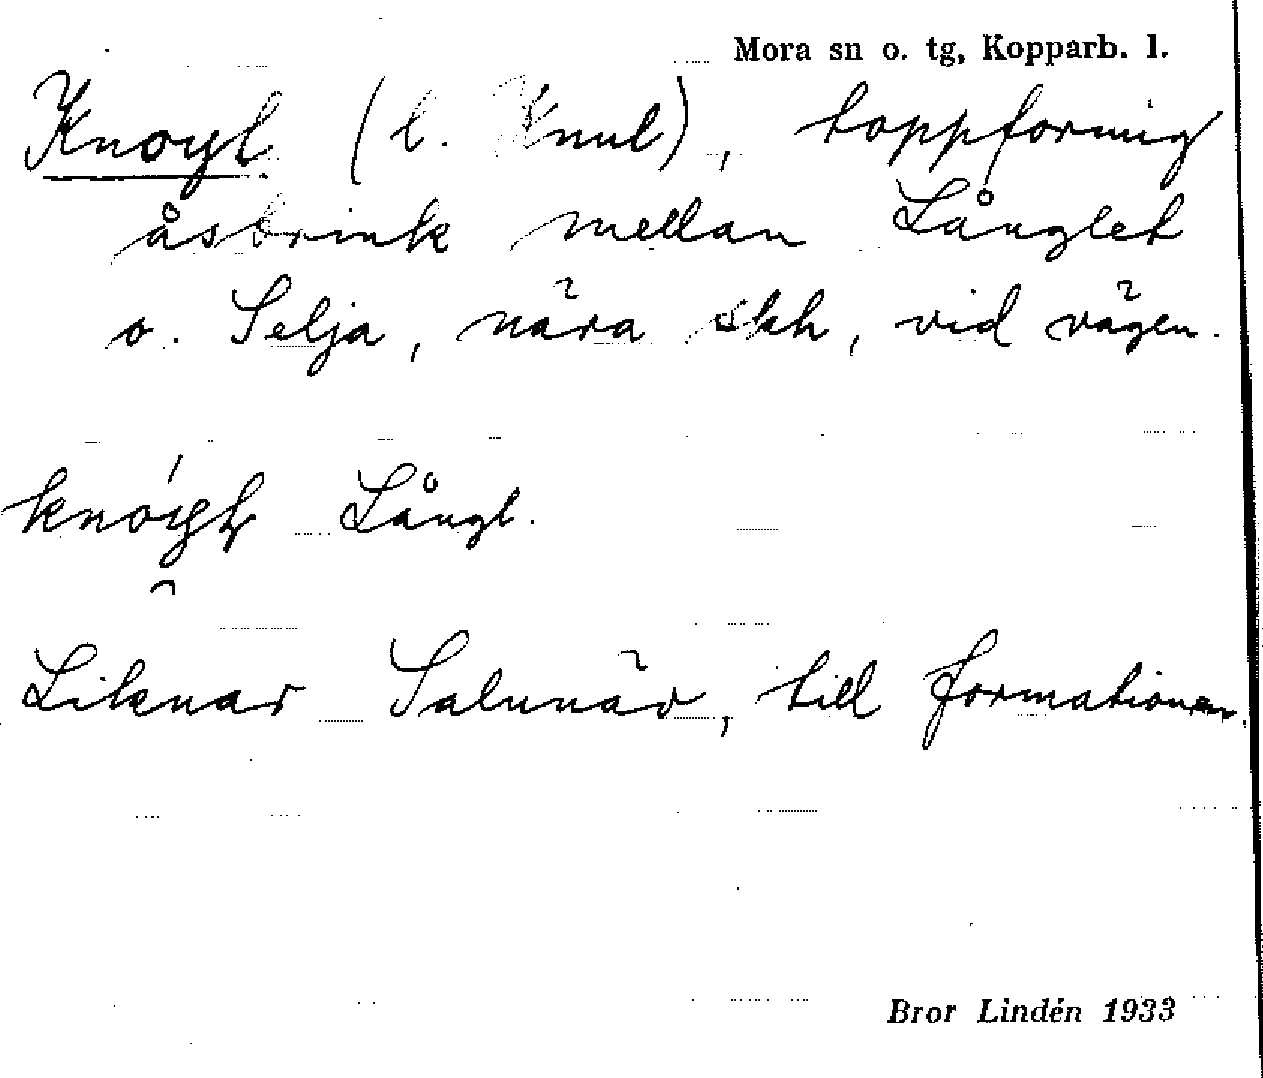 Mora sn o. tg, Kopparb. l.
Knoyl (l. Knul), toppformig
åsbrink mellan Långlet
o. Selja, nära skh, vid vägen.
Långl.
Liknar Salunär, till formationen.
Bror Lindén 1933